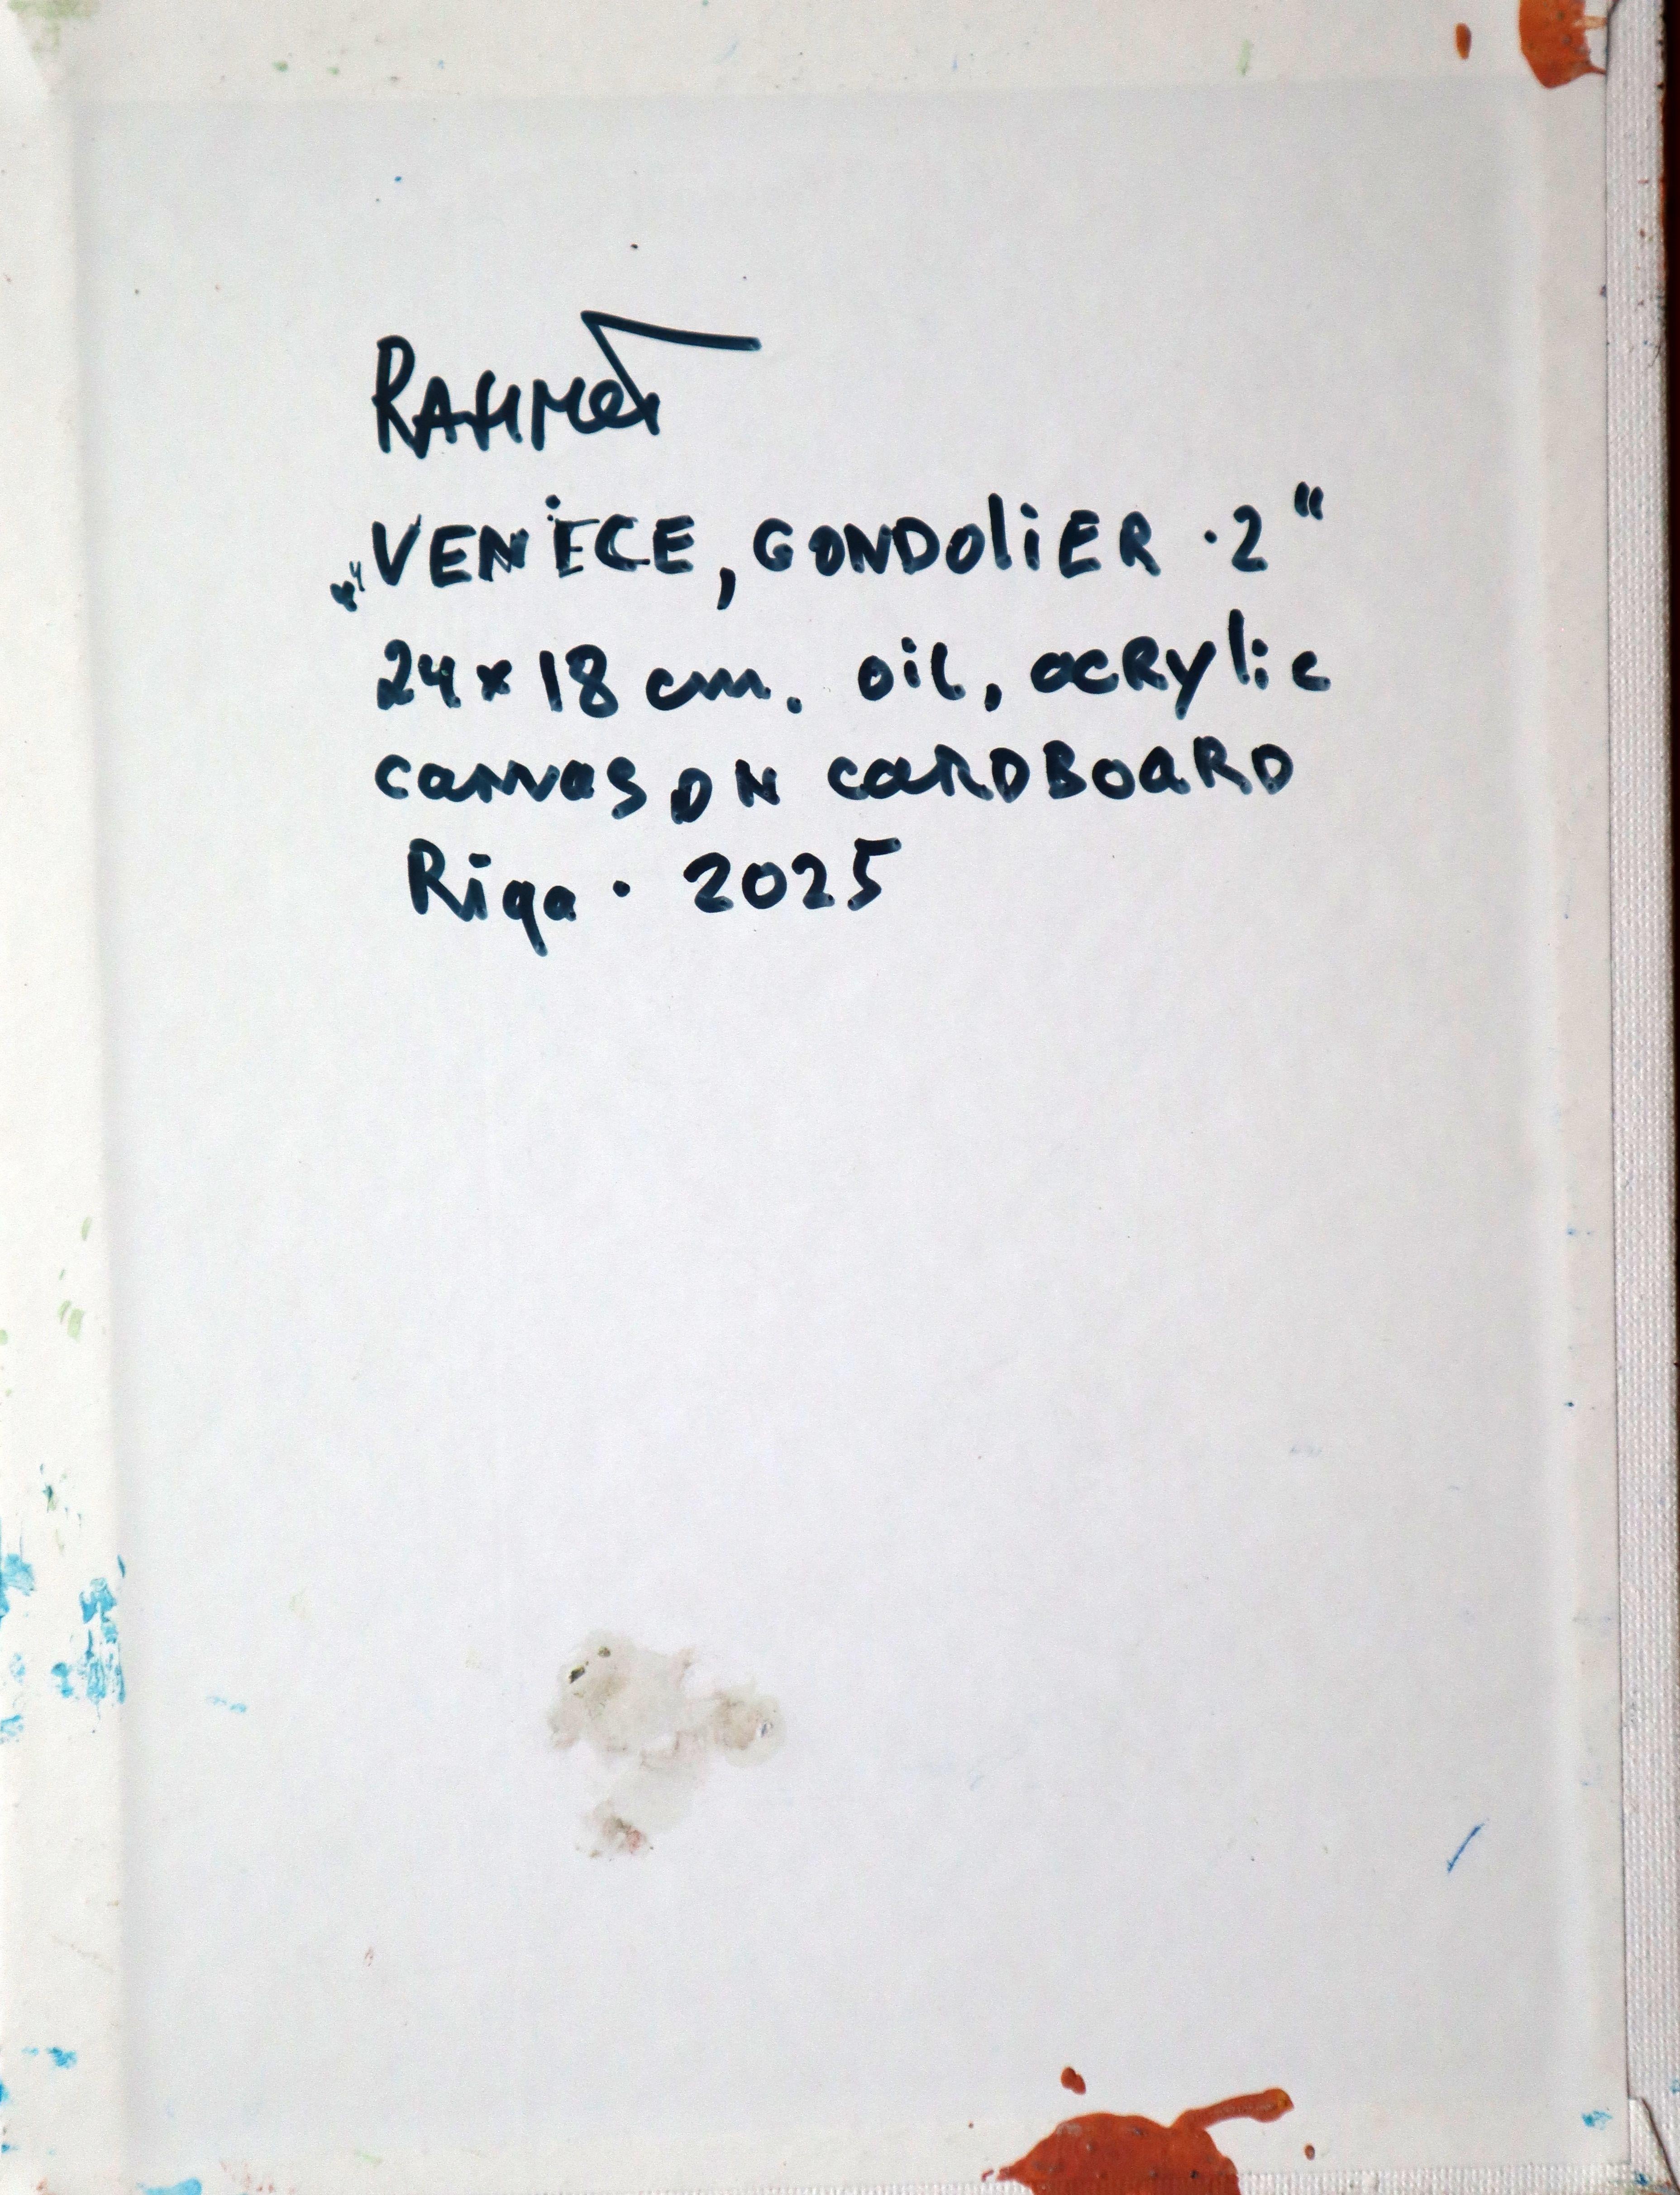 RAHMET
„VENiECE, GONDOliER ·2“
24x18 cm. oil, acRylic
canvas ON caRDBOaRD
Riga · 2025